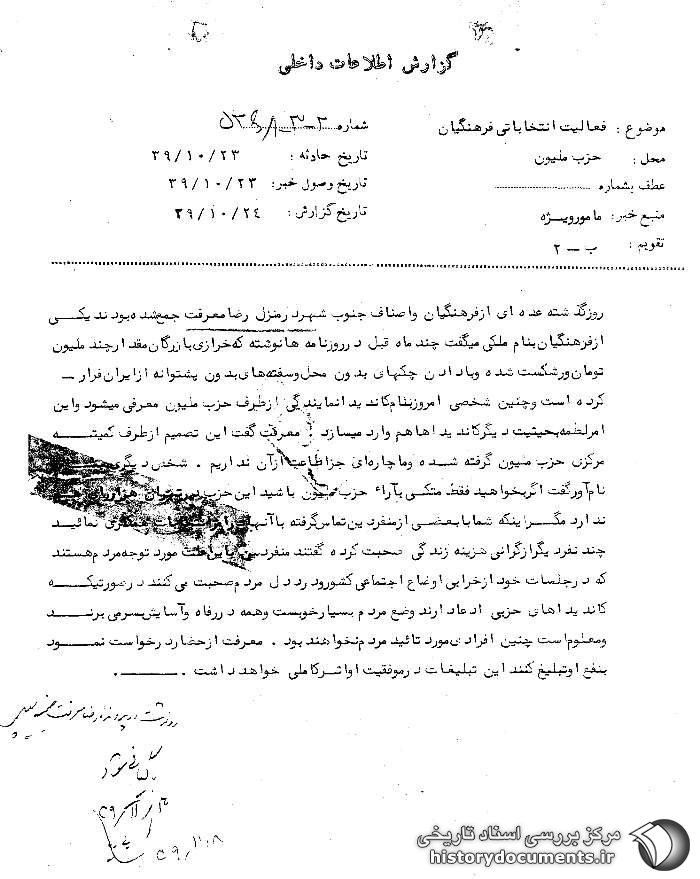 گزارش اطلاعات داخلی
موضوع : فعالیت انتخاباتی فرهنگیان
شماره
محل : حزب ملیون
تاریخ حادثه : ۳۹/۱۰/۲۳
عطف بشماره
تاریخ وصول خبر: ۳۹/۱۰/۲۳
منبع خبر: مامور ویژه
تاریخ گزارش : ۳۹/۱۰/۲٤
تقویم : ب ــ ۲
روز گذشته عده ای از فرهنگیان و اصناف جنوب شهر در منزل رضا معرفت جمع شده بودند یکی
از فرهنگیان بنام ملکی میگفت چند ماه قبل در روزنامه ها نوشته که خرازی بازرگان مقدار چند ملیون
تومان ورشکست شده و با دادن چکهای بدون محل و سفته های بدون پشتوانه از ایران فرار ــ
کرده است و چنین شخصی امروز بنام کاندیدا نمایندگی از طرف حزب ملیون معرفی میشود و این
امر لطمه بحیثیت دیگر کاندیداها هم وارد میسازد معرفت گفت این تصمیم از طرف کمیتــه
مرکزی حزب ملیون گرفته شده و ما چاره ای جز اطاعت از آن نداریم . شخص دیگری
نام آور گفت اگر بخواهید فقط متکی بآراء حزب ملیون باشید این حزب
ندارد مگر اینکه شما با بعضی از منفردین تماس گرفته با آنها نمائید
چند نفر دیگر از گرانی هزینه زندگی صحبت کرده گفتند منفردین مورد توجه مردم هستند
که در جلسات خود از خرابی اوضاع اجتماعی کشور و درد دل مردم صحبت می کنند در صورتیکــه
کاندیداهای حزبی ادعا دارند وضع مردم بسیار خوبست و همه در رفاه و آسایش بسر می برنــد
و معلوم است چنین افرادی مورد تائید مردم نخواهند بود . معرفت از حضار درخواست نمــود
بنفع او تبلیغ کنند این تبلیغات در موفقیت او اثر کاملی خواهد داشت .ــــــ .
بایگانی شود
مرکز بررسی اسناد تاریخی
historydocuments.ir